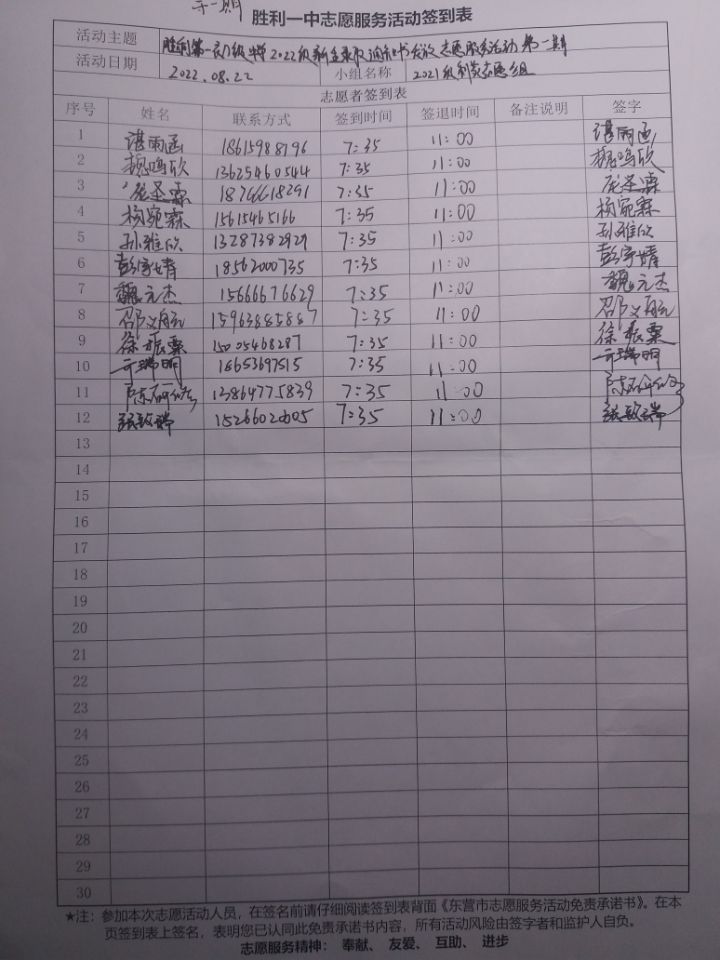 第一期
胜利一中志愿服务活动签到表
活动主题 胜利第一初级中学2022级新生录取通知书发放志愿服务活动第一期
活动日期 2022.08.22 小组名称 2021级 志愿组
志愿者签到表
序号 姓名 联系方式 签到时间 签退时间 备注说明 签字
1 谌雨函 18615988796 7:35 11:00 谌雨函
2 魏鸣欣 13625460544 7:35 11:00 魏鸣欣
3 庞圣霖 18766618291 7:35 11:00 庞圣霖
4 杨宛霖 15615465166 7:35 11:00 杨宛霖
5 孙雅欣 13287382929 7:35 11:00 孙雅欣
6 彭宇婧 18562000735 7:35 11:00 彭宇婧
7 魏元杰 15666676629 7:35 11:00 魏元杰
8 邵文航 15963885887 7:35 11:00 邵文航
9 徐振粟 15005468287 7:35 11:00 徐振粟
10 亓瑞明 18653697515 7:35 11:00 亓瑞明
11 陈 13864775839 7:35 11:00 陈
12 张致瑞 15266020605 7:35 11:00 张致瑞
13
14
15
16
17
18
19
20
21
22
23
24
25
26
27
28
29
30
★注：参加本次志愿活动人员，在签名前请仔细阅读签到表背面《东营市志愿服务活动免责承诺书》。在本
页签到表上签名，表明您已认同此免责承诺书内容，所有活动风险由签字者和监护人自负。
志愿服务精神： 奉献、 友爱、 互助、 进步